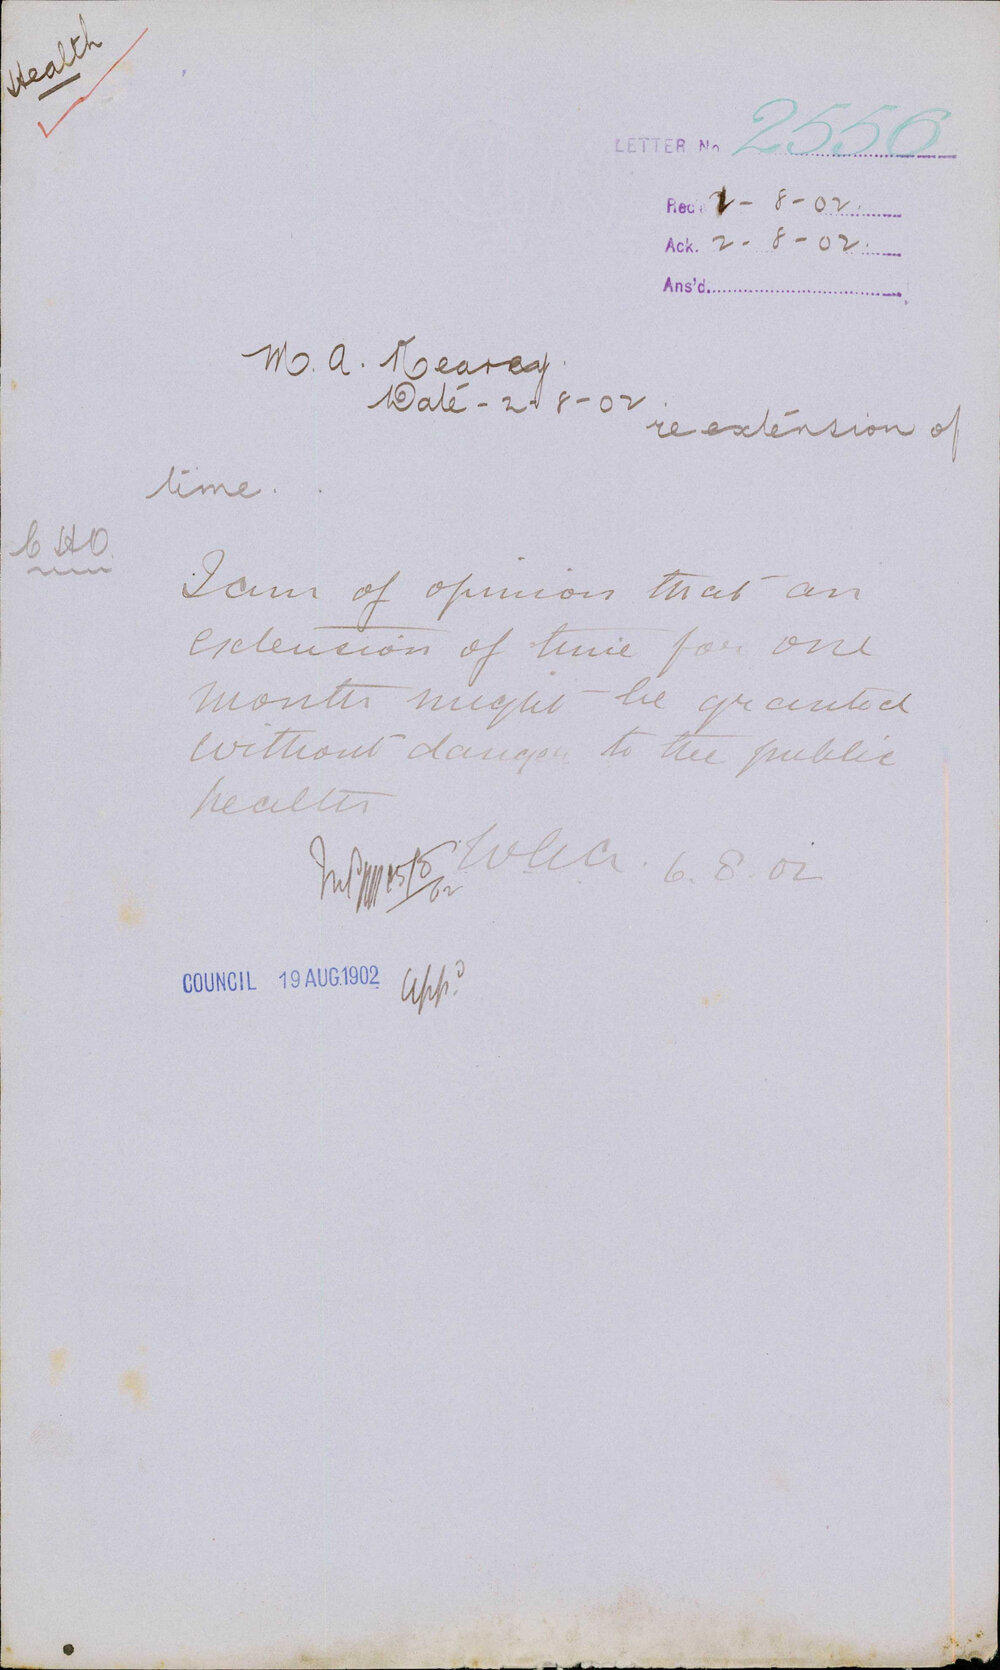 Health
LETTER No 2556
Rec 2-8-02.
Ack. 2-8-02.
Ans'd.
M. A. Kearey.
Date - 2-8-02
re extension of
time.
CHO.
I am of opinion that an
extension of time for one
month might be granted
without danger to the public
health
6.8.02
COUNCIL 19 AUG.1902 App.d